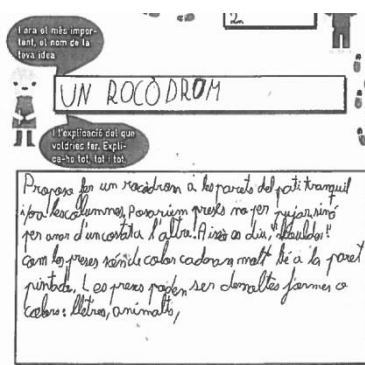 I ara el més impor-
tant, el nom de la
teva idea
2n
UN ROCÒDROM
I l'explicació del que
voldries fer. Expli-
ca-ho tot, tot i tot.
Proposo fer un rocòdrom a les parets del pati tranquil
i/o a les columnes, Posaríem preses no per pujar, sinó
per anar d'un costat a l'altre. Això es diu,
com les preses són de color cadoran molt bé a la paret
pintada. Les preses poden ser de moltes formes o
colors: lletres, animalts,